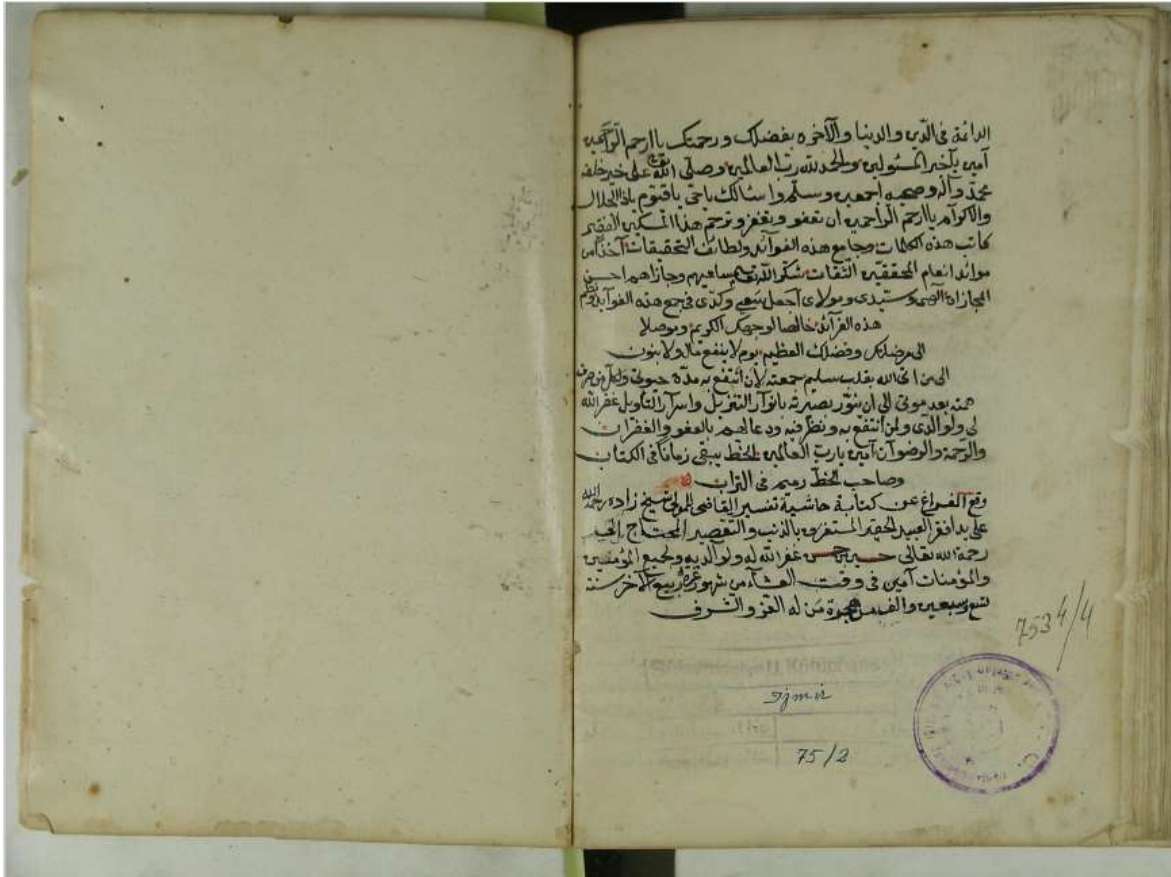 الدائمة فى الدين والدنيا والآخره بفضلك ورحمتك ياارحم الراحمين
آمين يآخير المسئولين والحمد لله رب العالمين وصلى الله تعالى على خير خلقه
محمد وآله وصحبه اجمعين وسلم واسالك ياحى ياقيوم ياذالجلال
والاكرآم ياارحم الراحمين ان تعفو وتغفر وترحم هذا المسكين الفقير
كاتب هذه الكلمات وجامع هذه الفوآئد ولطائف التحقيقات آخذا من
موائد انعام المحققين الثقات شكر الله تعالى مساعيهم وجازاهم احسن
المجازاة اللهم وسيدى ومولاى اجعل سعيى وكدى فى جمع هذه الفوآيد ونظم
هذه الفرآئد خالصا لوجهك الكريم وموصلا
الى مرضاتك وفضلك العظيم يوم لاينفع مال ولابنون
الى من اتى الله بقلب سليم جمعته لأن انتفع به مدة حيوتى ولكل من صرف
همته بعد موتى الى ان ينور بصيرته بانوآر التنزيل واسرآر التأويل غفر الله
لى ولوالدى ولمن انتفع به ونظر فيه ودعا لهم بالعفو والغفران
والرحمة والرضوآن آمين يارب العالمين الخط يبقى زمانا فى الكتاب
وصاحب الخط رميم فى التراب
وقع الفراغ عن كتابة حاشية تفسير القاضى للمولى شيخ زاده رحمه الله
على يد افقر العبيد الحقير المستغرق بالذنب والتقصير المحتاج الى
رحمة الله تعالى حسين بن حسن غفر الله له ولوالديه ولجميع المؤمنين
والمؤمنات آمين فى وقت العشآء من شهور غرة ربيع الآخر سنة
تسع وسبعين والف من هجرة من له العز والشرف
7534/4
Izmir
75/2